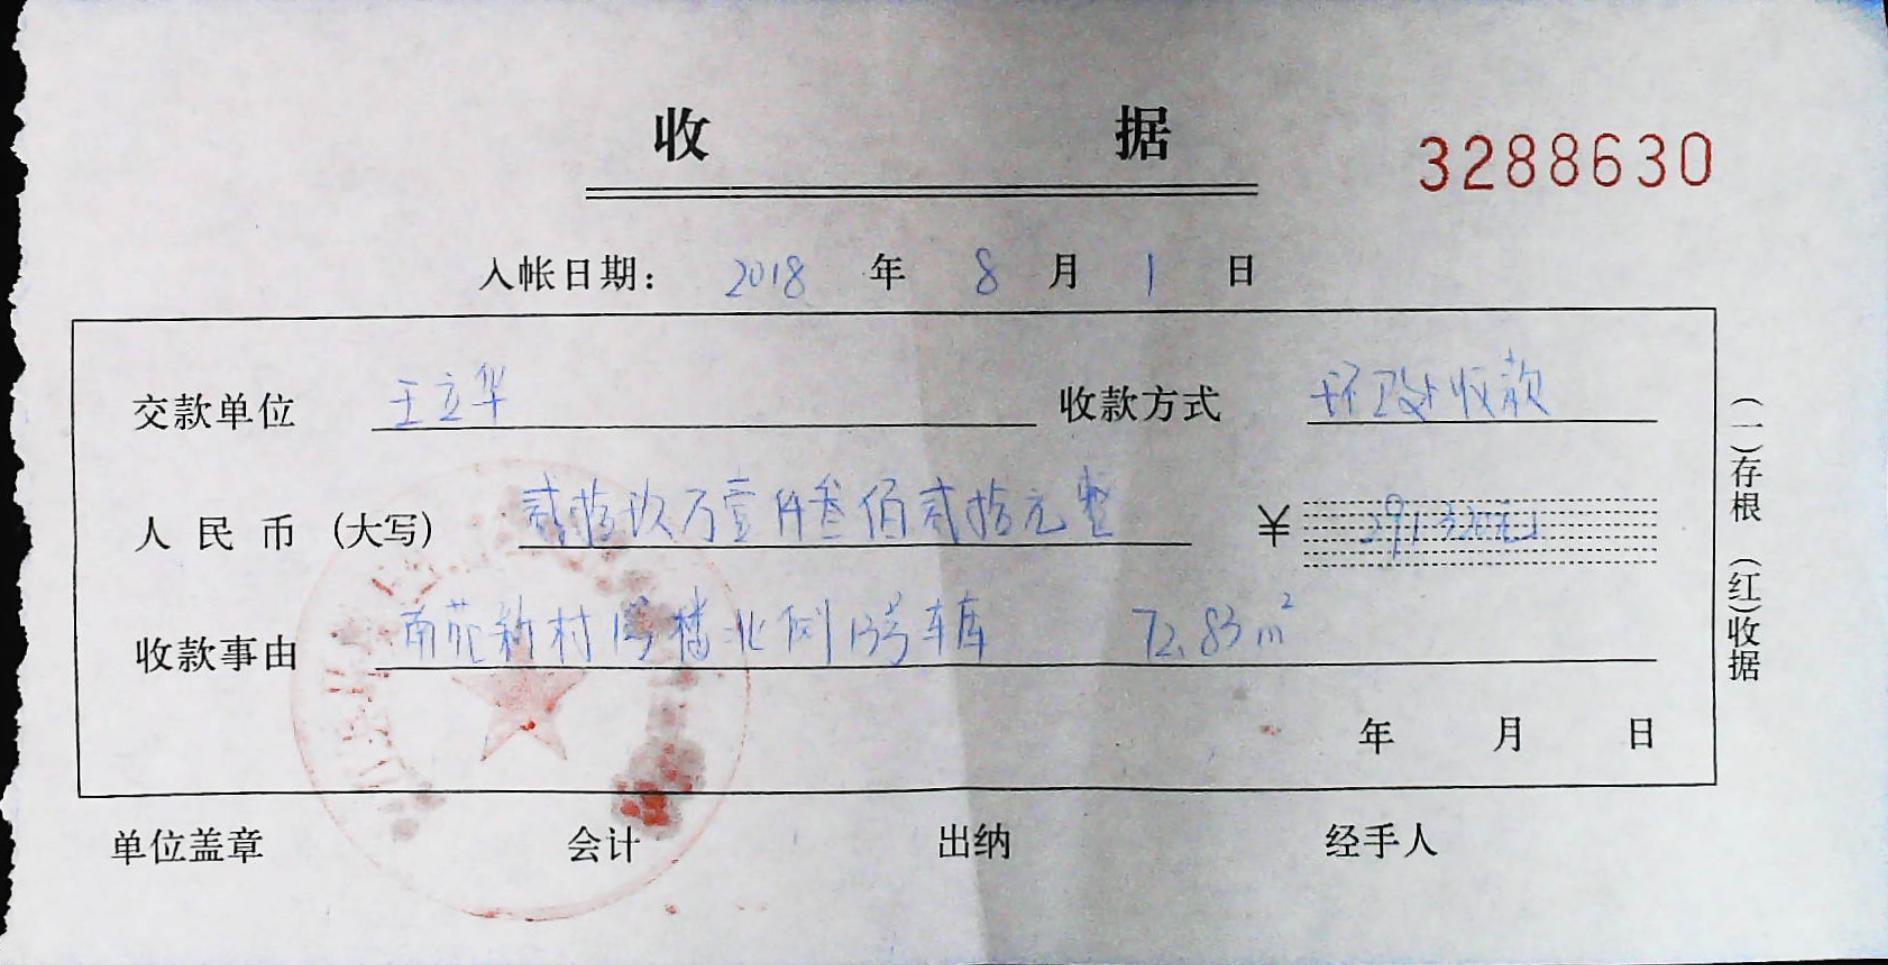 收 据
3288630
入帐日期： 2018 年 8 月 1 日
交款单位 王立华 收款方式 环卫处收款
人民币（大写） 贰拾玖万壹仟叁佰贰拾元整 ￥ 291320元
收款事由 南苑新村 号楼北侧13号车库 72.83m²
年 月 日
单位盖章 会计 出纳 经手人
（一）存根（红）收据